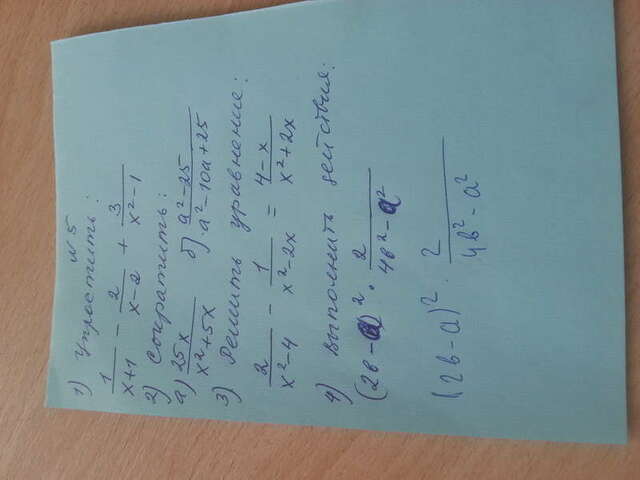 № 5
1) Упростить:
1/(x+1) - 2/(x-2) + 3/(x²-1)
2) Сократить:
а) 25x/(x²+5x) б) (a²-25)/(a²-10a+25)
3) Решить уравнение:
2/(x²-4) - 1/(x²-2x) = (4-x)/(x²+2x)
4) Выполнить действия:
(2в-а)² · 2/(4в²-а²)
(2в-а)² · 2/(4в²-а²)